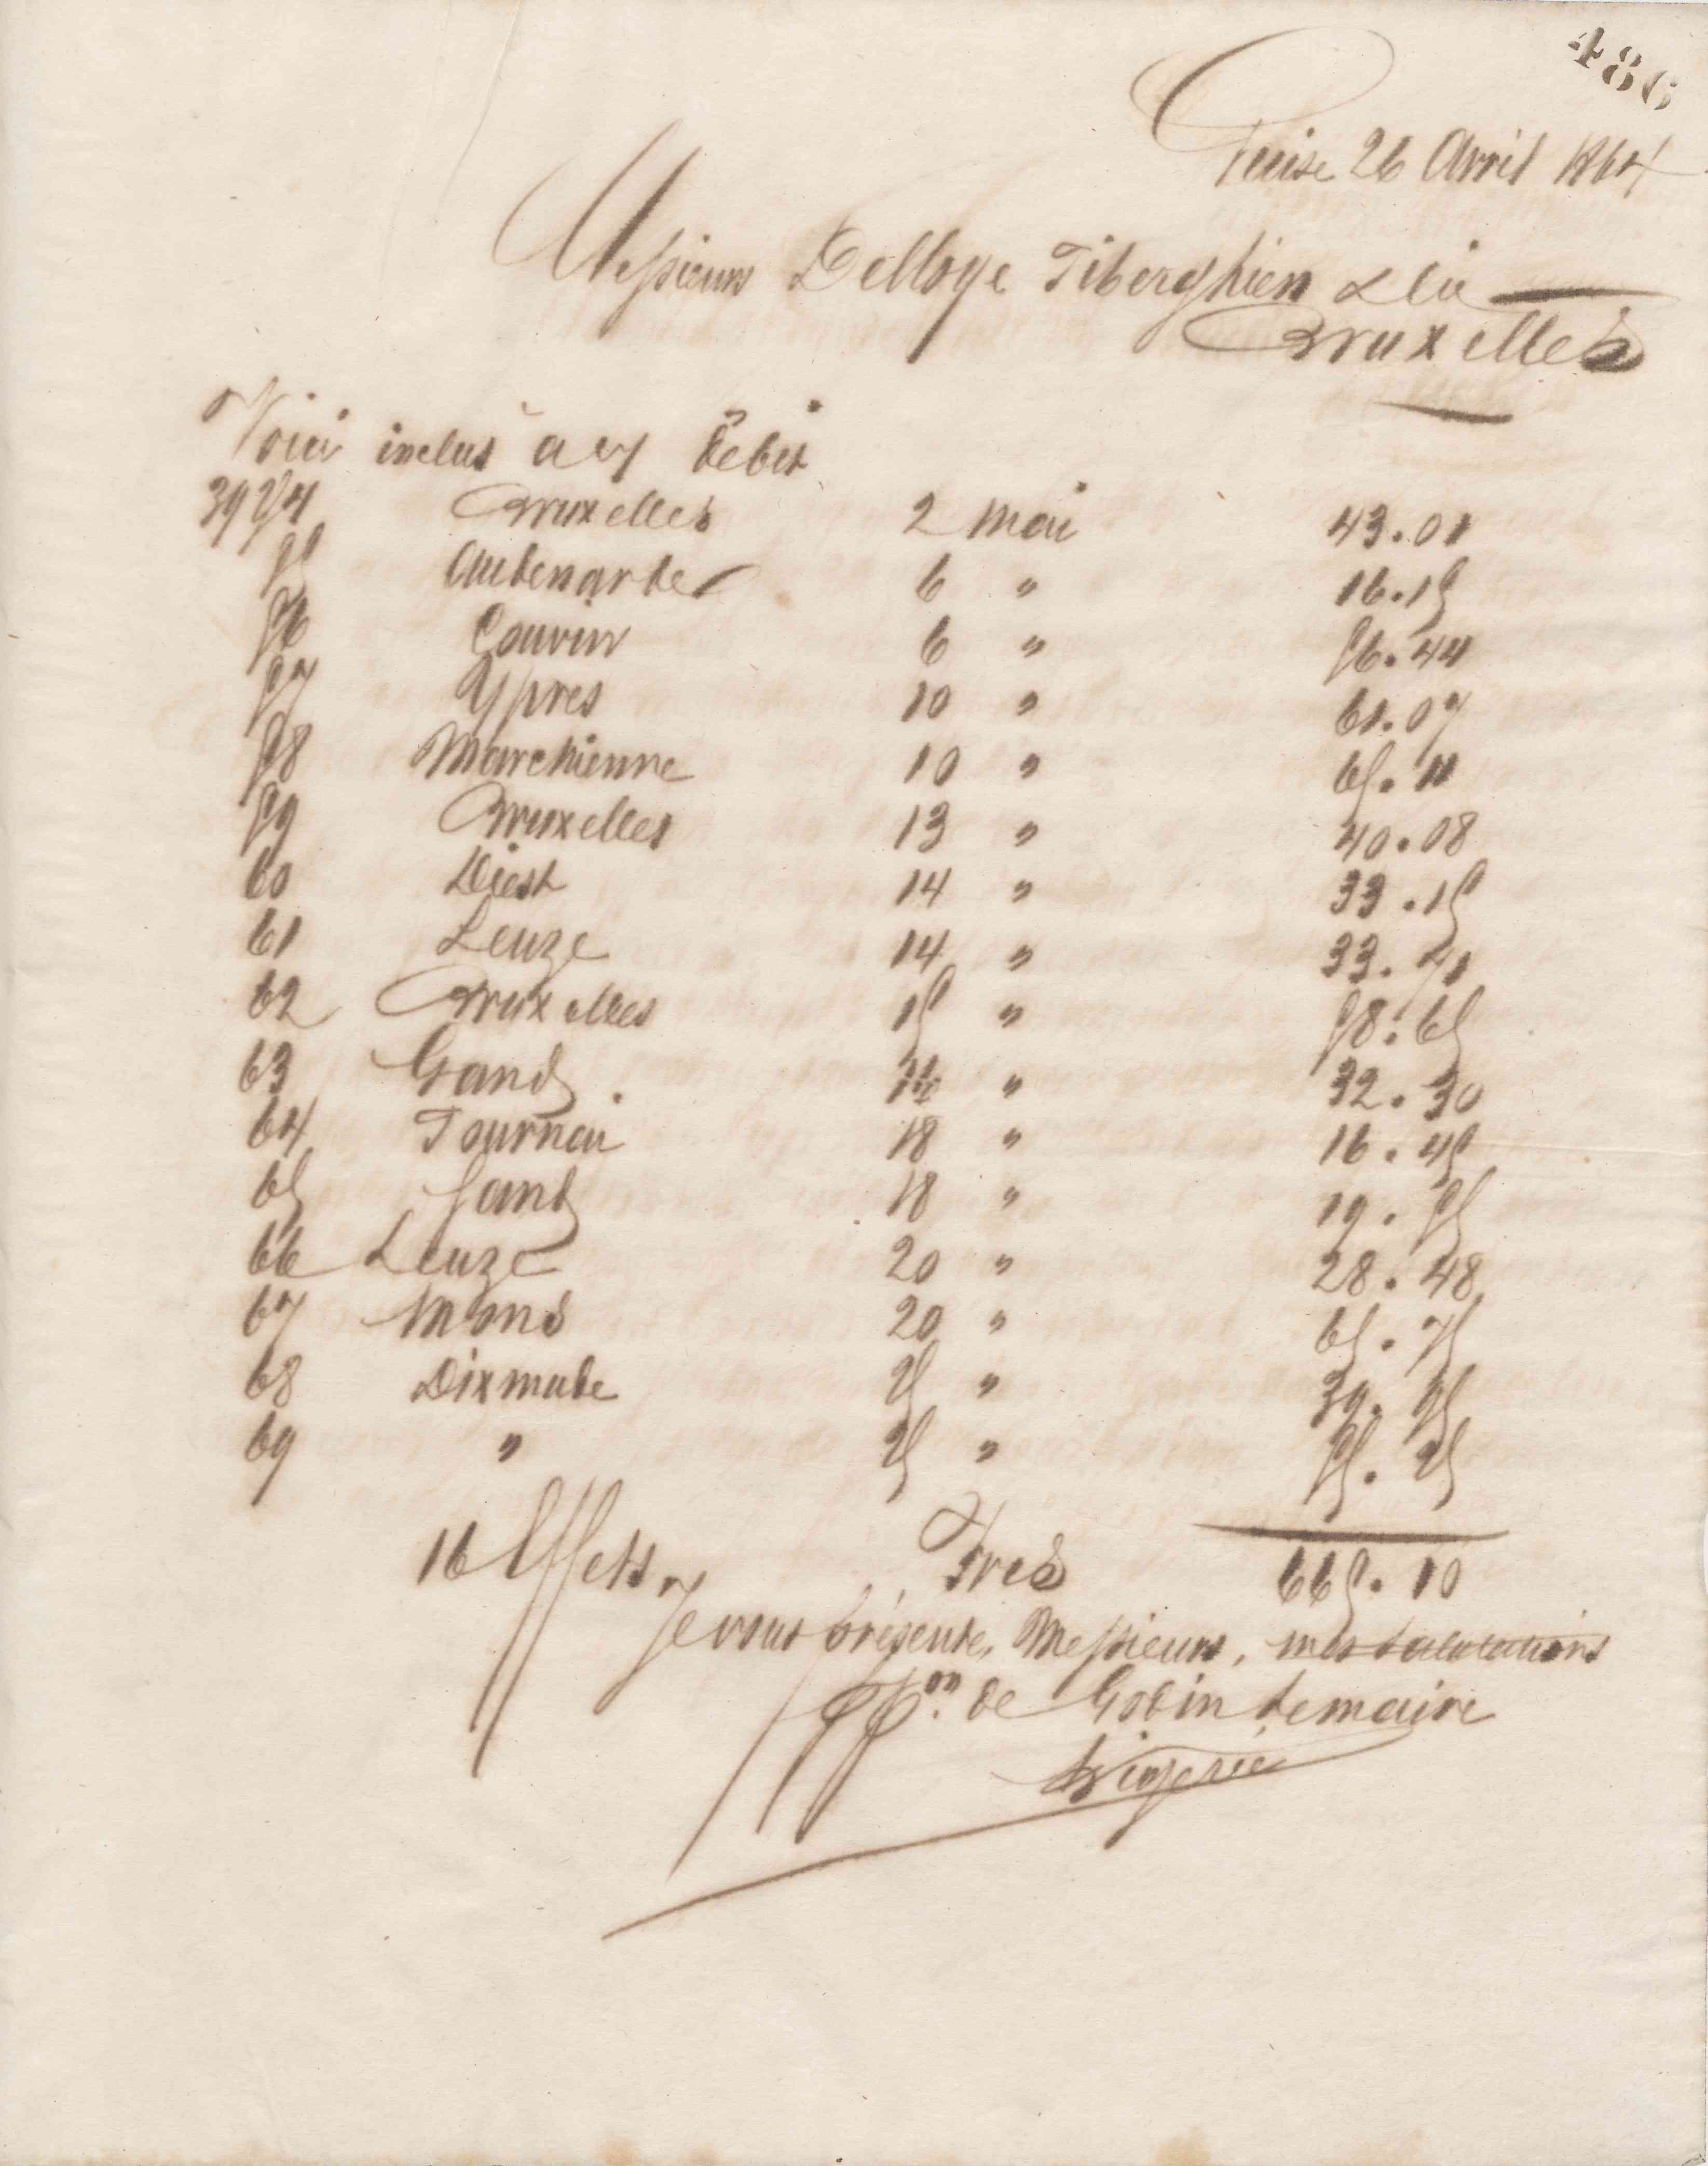 486
Guise 26 Avril 1864
Messieurs Delloye Tiberghien & Cie
Bruxelles
Voici inclus à v/ débit
3954 Bruxelles 2 Mai 43.01
55 Audenarde 6 " 16.15
56 Couvin 6 " 56.44
57 Ypres 10 " 61.07
58 Marchienne 10 " 65.11
59 Bruxelles 13 " 40.08
60 Diest 14 " 33.15
61 Leuze 14 " 33.71
62 Bruxelles 15 " 58.65
63 Gand " 32.30
64 Tournai 18 " 16.45
65 Gand 18 " 19.55
66 Leuze 20 " 28.48
67 Mons 20 " 65.75
68 Dixmude 25 " 39.95
69 " 25 " 55.25
16 Effets, Frcs 665.10
Je vous présente, Messieurs, mes salutations
ppon. de Godin Lemaire